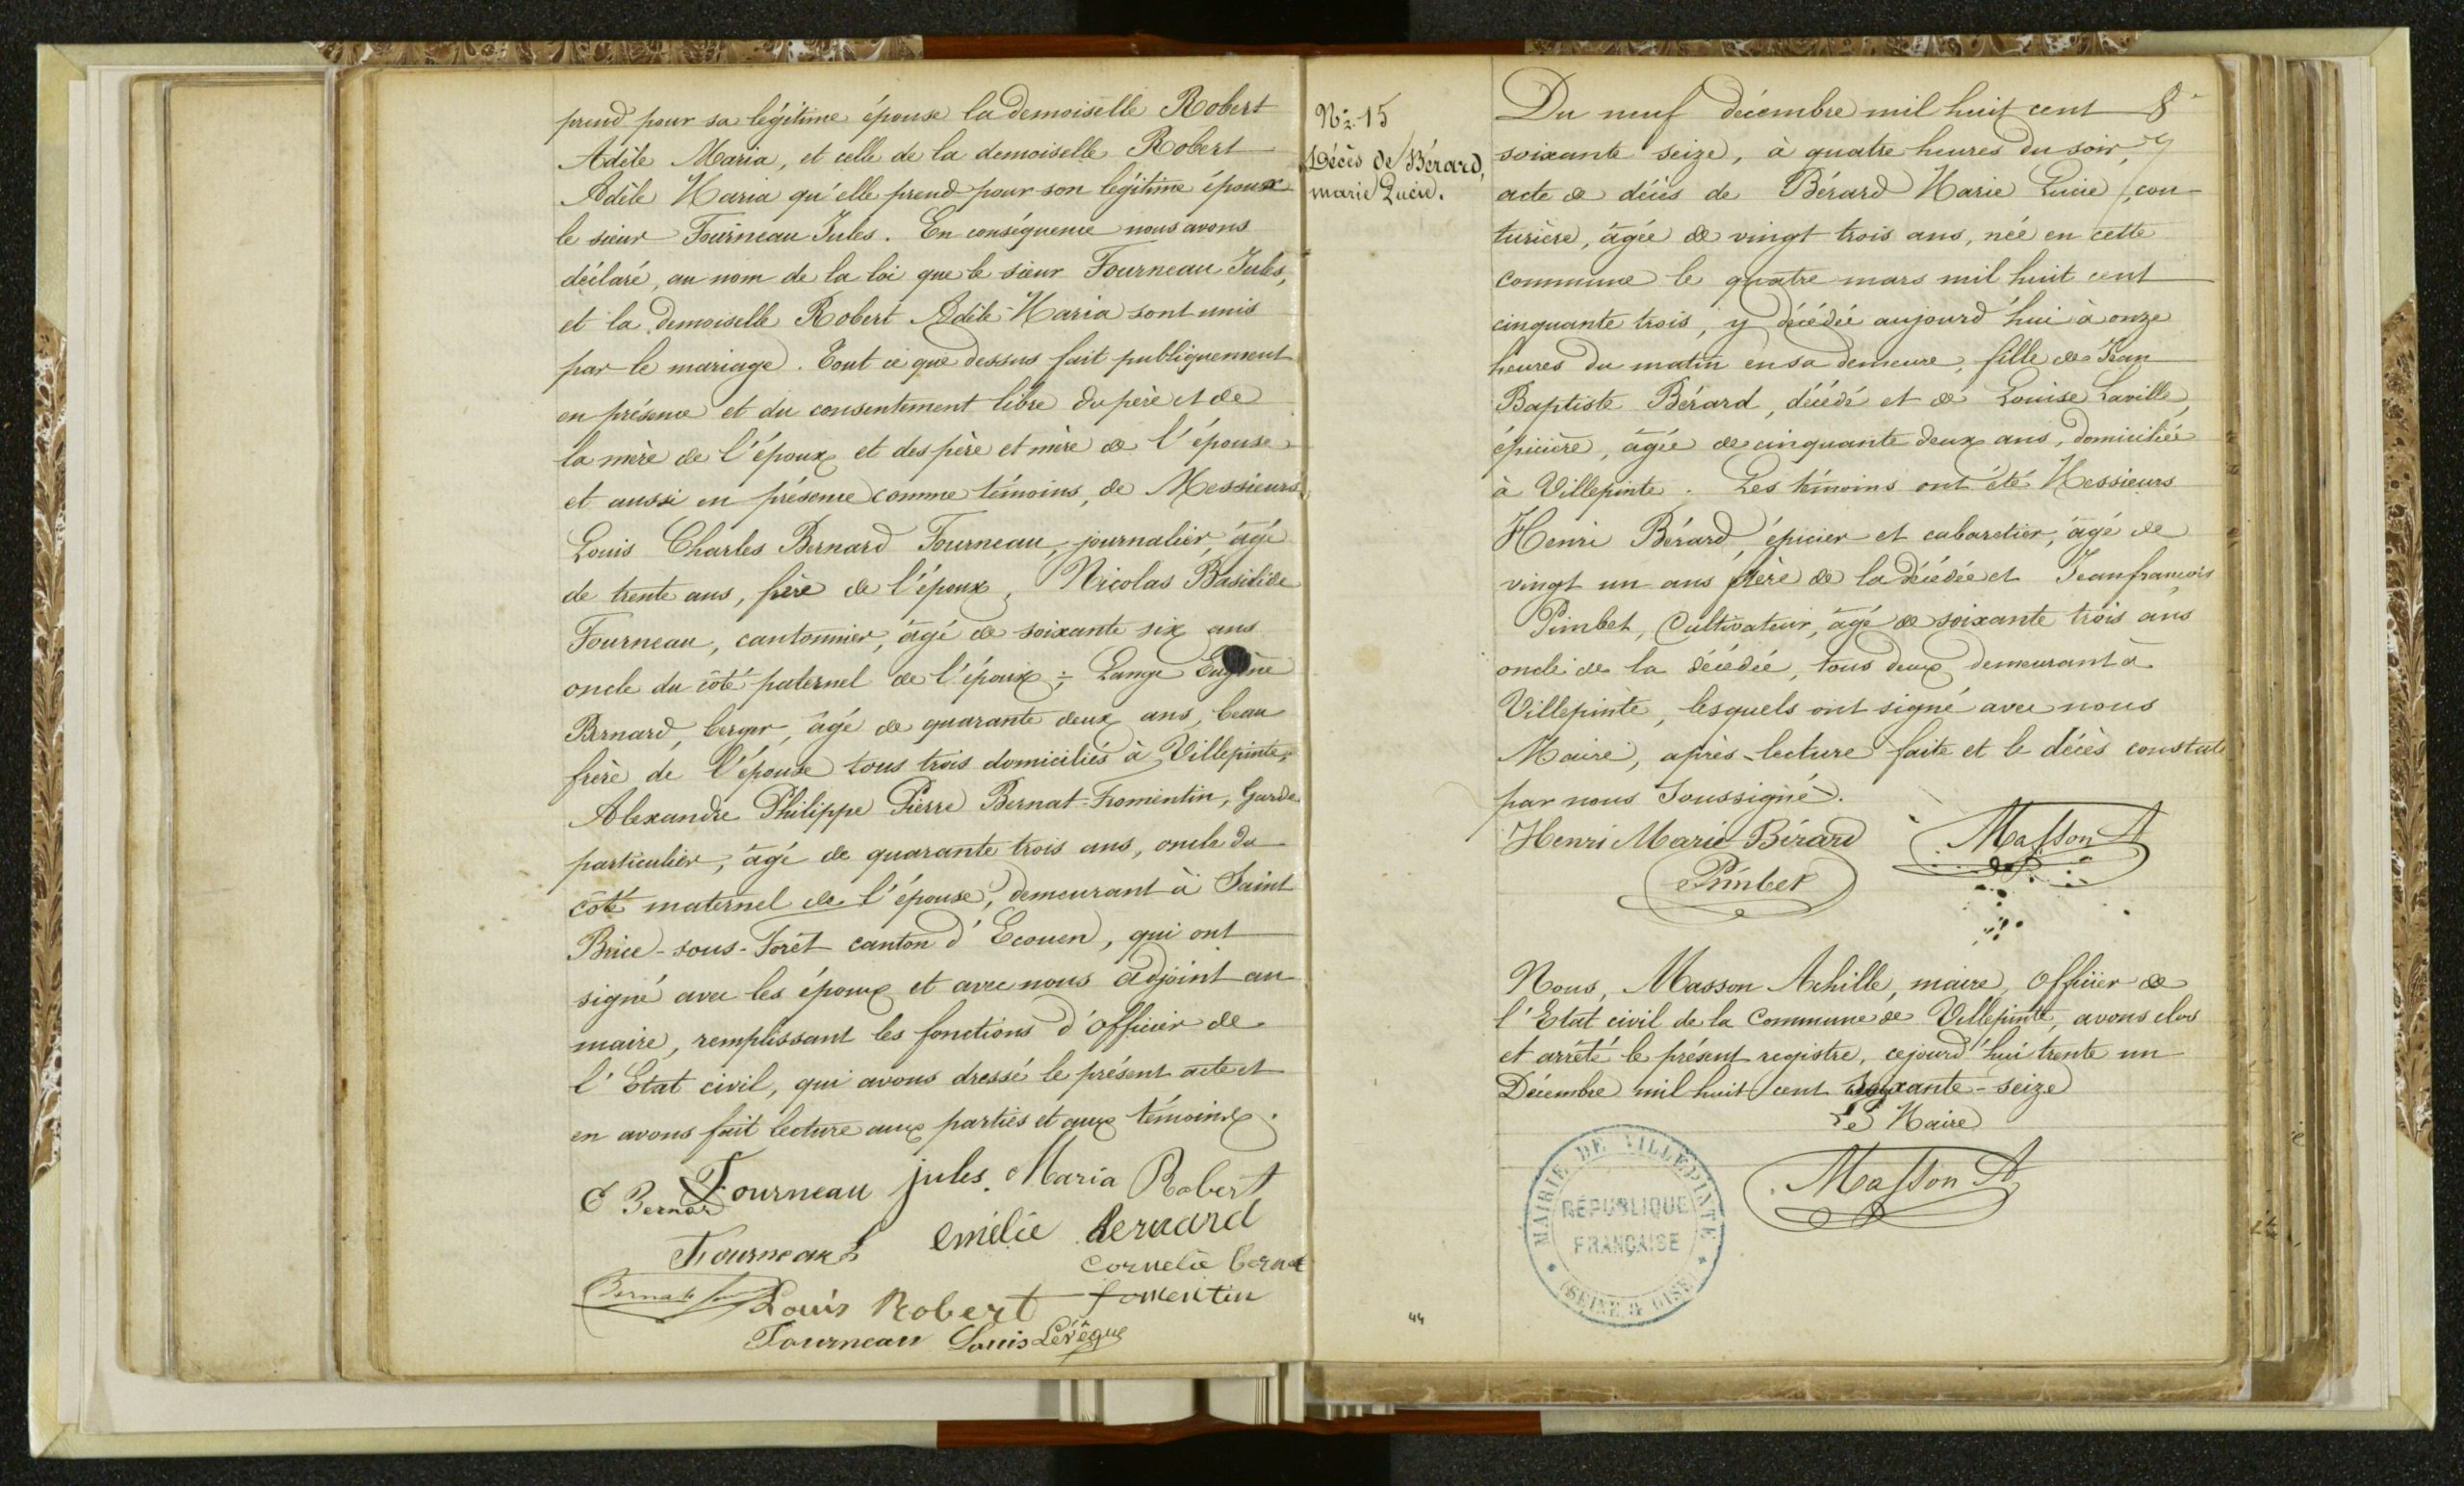 prend pour sa légitime épouse la demoiselle Robert
Adèle Maria, et celle de la demoiselle Robert
Adèle Maria qu'elle prend pour son légitime époux
le sieur Fourneau Jules. En conséquence nous avons
déclaré, au nom de la loi que le sieur Fourneau Jules,
et la demoiselle Robert Adèle-Maria sont unis
par le mariage. Tout ce que dessus fait publiquement
en présence et du consentement libre du père et de
la mère de l'époux et des père et mère de l'épouse
et aussi en présence comme témoins, de Messieurs
Louis Charles Bernard Fourneau, journalier, âgé
de trente ans, frère de l'époux, Nicolas Basilide
Fourneau, cantonnier, âgé de soixante six ans
oncle du côté paternel de l'époux ; Lange Eugène
Bernard, berger, âgé de quarante deux ans, beau
frère de l'épouse tous trois domiciliés à Villepinte,
Alexandre Philippe Pierre Bernat-Fromentin, Garde
particulier, âgé de quarante trois ans, oncle du
côté maternel de l'épouse, demeurant à Saint
Brice-sous-Forêt canton d'Ecouen, qui ont
signé avec les époux et avec nous adjoint au
maire, remplissant les fonctions d'officier de
l'Etat civil, qui avons dressé le présent acte et
en avons fait lecture aux parties et aux témoins.
E Bernard Fourneau jules. Maria Robert
Fourneau emélie Bernard
Cornelie bernat
Louis Robert fomentin
Fourneau Louis Lévêque
N° 15
Décès de Bérard,
marie Lucie.
Du neuf décembre mil huit cent 8
soixante seize, à quatre heures du soir, 7
acte de décès de Bérard Marie Lucie, cou-
turière, âgée de vingt trois ans, née en cette
commune le quatre mars mil huit cent
cinquante trois, y décédée aujourd'hui à onze
heures du matin en sa demeure, fille de Jean
Baptiste Bérard, décédé et de Louise Laville,
épicière, âgée de cinquante deux ans, domiciliée
à Villepinte. Les témoins ont été Messieurs
Henri Bérard, épicier et cabaretier, âgé de
vingt un ans frère de la décédée et Jean françois
Pimbet, Cultivateur, âgé de soixante trois ans
oncle de la décédée, tous deux demeurant à
Villepinte, lesquels ont signé avec nous
Maire, après-lecture faite et le décès constaté
par nous Soussigné.
Henri Marie Bérard Masson A
Pimbet
Nous, Masson Achille, maire, officier de
l'Etat civil de la Commune de Villepinte, avons clos
et arrêté le présent registre, cejourd'hui trente un
Décembre mil huit cent soixante-seize
Le Maire
Masson A
MAIRIE DE VILLEPINTE
RÉPUBLIQUE
FRANÇAISE
(SEINE & OISE)
44